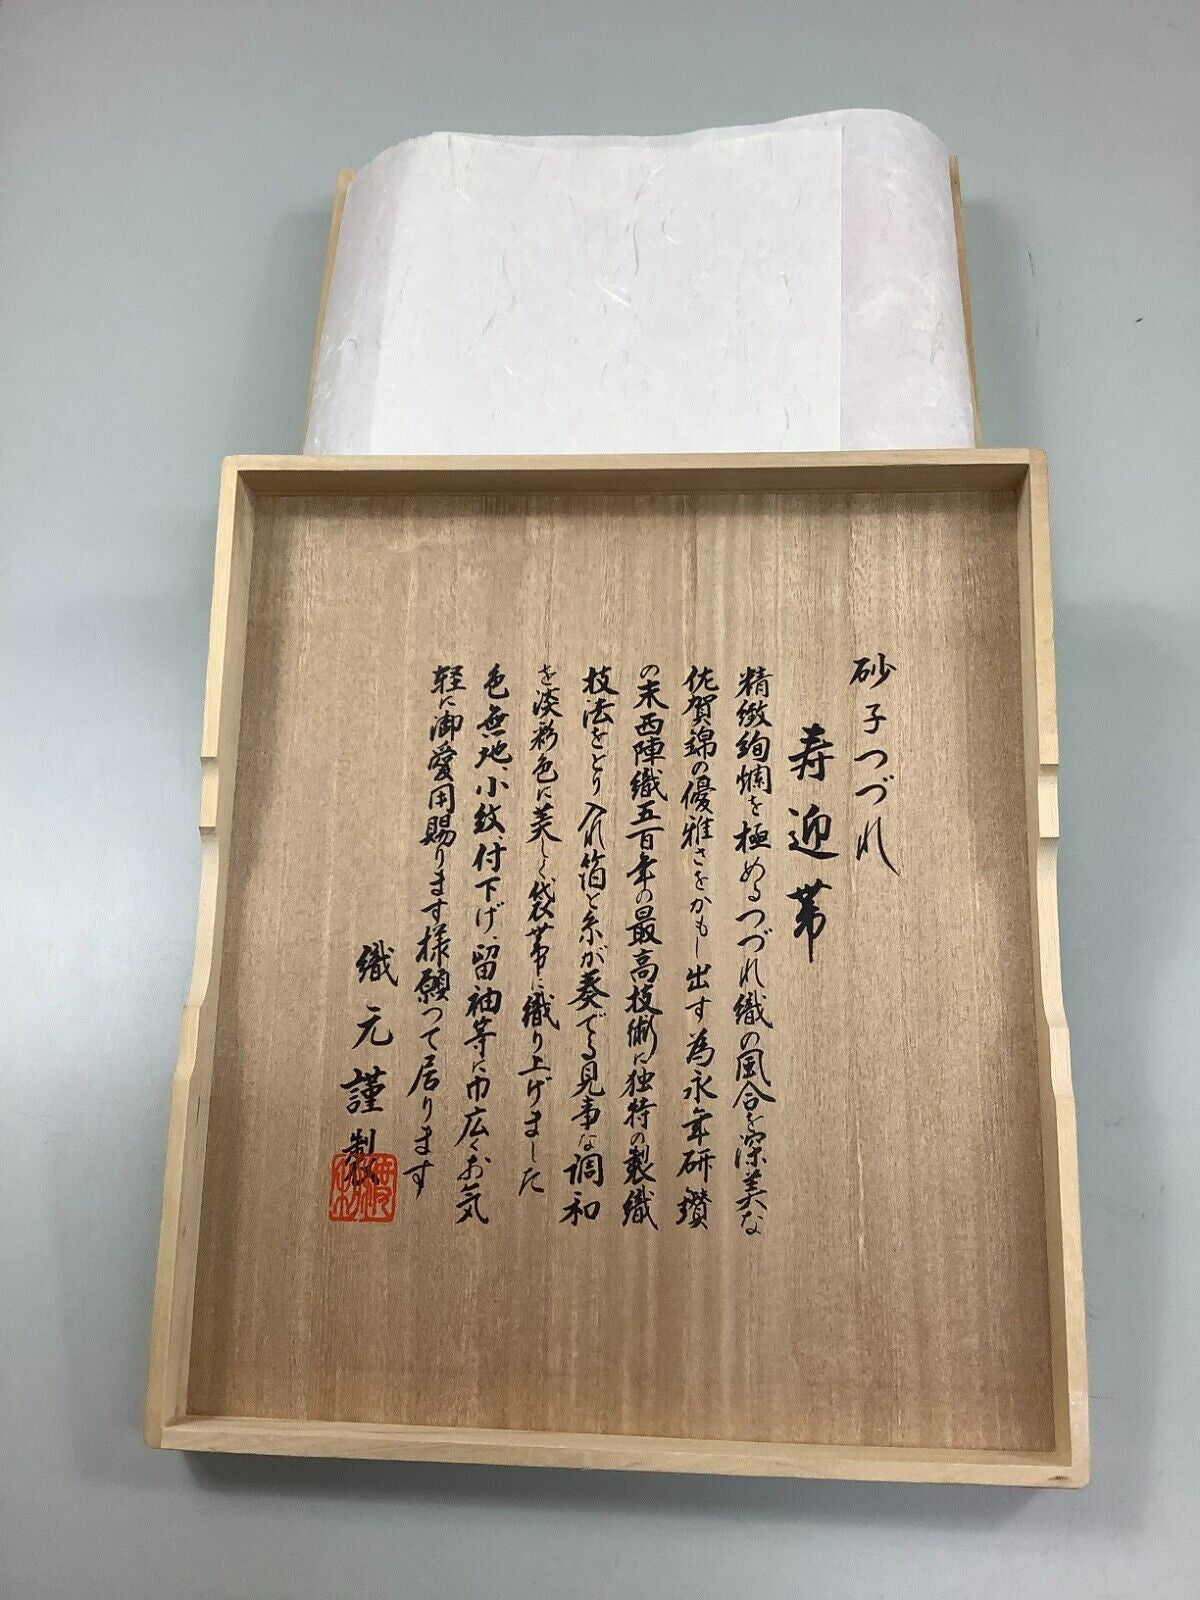 砂子つづれ
寿迎帯
精緻絢爛を極めるつづれ織の風合を深美な
佐賀錦の優雅さをかもし出す為永年研鑚
の末西陣織五百年の最高技術に独特の製織
技法をとり入れ箔と糸が奏でる見事な調和
を淡彩色に美しく袋帯に織り上げました
色無地、小紋、付下げ、留袖等に巾広くお気
軽に御愛用賜ります様願つて居ります
織元謹製